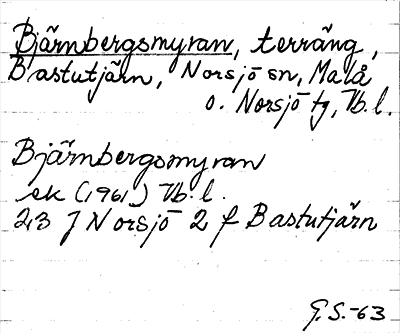 Bjärnbergsmyran, terräng,
Bastutjärn, Norsjö sn, Malå
o. Norsjö tg, Vb. l.
Bjärnbergsmyran
ek (1961) Vb. l.
23 J Norsjö 2 f Bastutjärn
G. S. -63